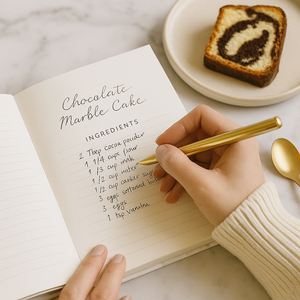 Chocolate
Marble Cake
INGREDIENTS
2 Tbsp cocoa powder
1 1/4 cups flour
1/3 cup milk
1/2 cup water
1/2 cup caster sug
3 eggs softened bu
3 eggs
1 tsp vanilla